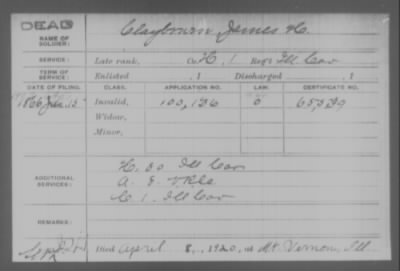 DEAD
NAME OF SOLDIER: Claybourn James H.
SERVICE: Late rank, Co. H, 1 Reg't Ill Cav
TERM OF SERVICE: Enlisted , 1 Discharged , 1
DATE OF FILING. CLASS. APPLICATION NO. LAW. CERTIFICATE NO.
1866 Jan. 15 Invalid, 100,126
Widow,
Minor,
ADDITIONAL SERVICES:
Ill Cav
C. 1. Ill Cav
REMARKS:
Died April 8, 1920, at Mt. Vernon, Ill